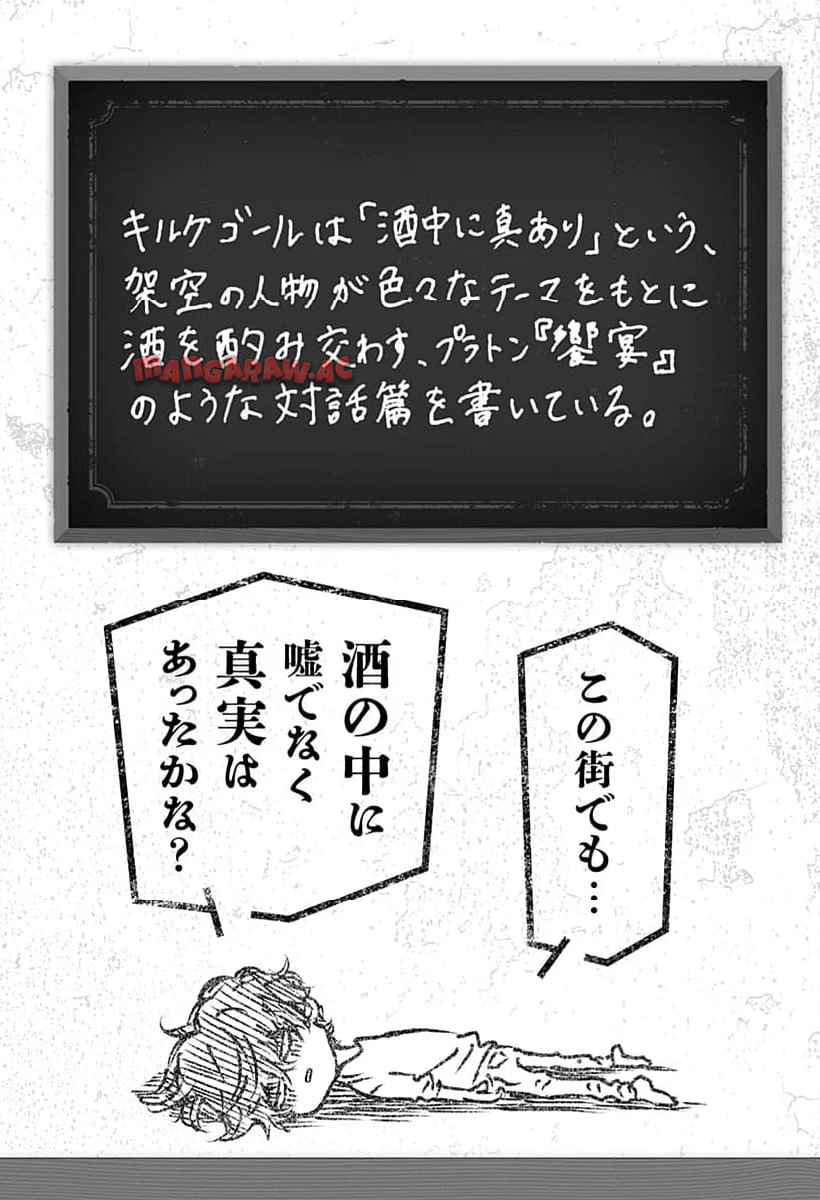 キルケゴールは「酒中に真あり」という、
架空の人物が色々なテーマをもとに
酒を酌み交わす、プラトン『饗宴』
MANGARAW.AC
のような対話篇を書いている。
この街でも…
酒の中に
嘘でなく
真実は
あったかな?